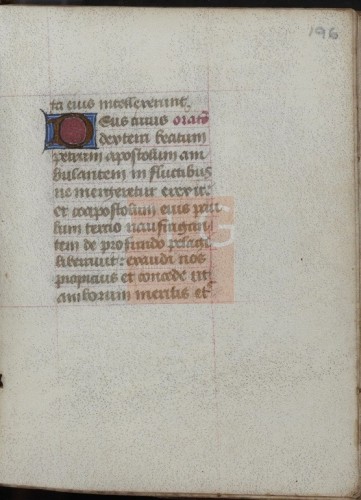 196
ta eius intellexerunt.
Deus cuius orato
dextera beatum
petrum apostolum am
bulantem in fluctibus
ne mergeretur erexit:
et coapostolum eius pau
lum tercio naufragan
tem de profundo pelagi
liberauit: exaudi nos
propicius et concede ut
amborum meritis et